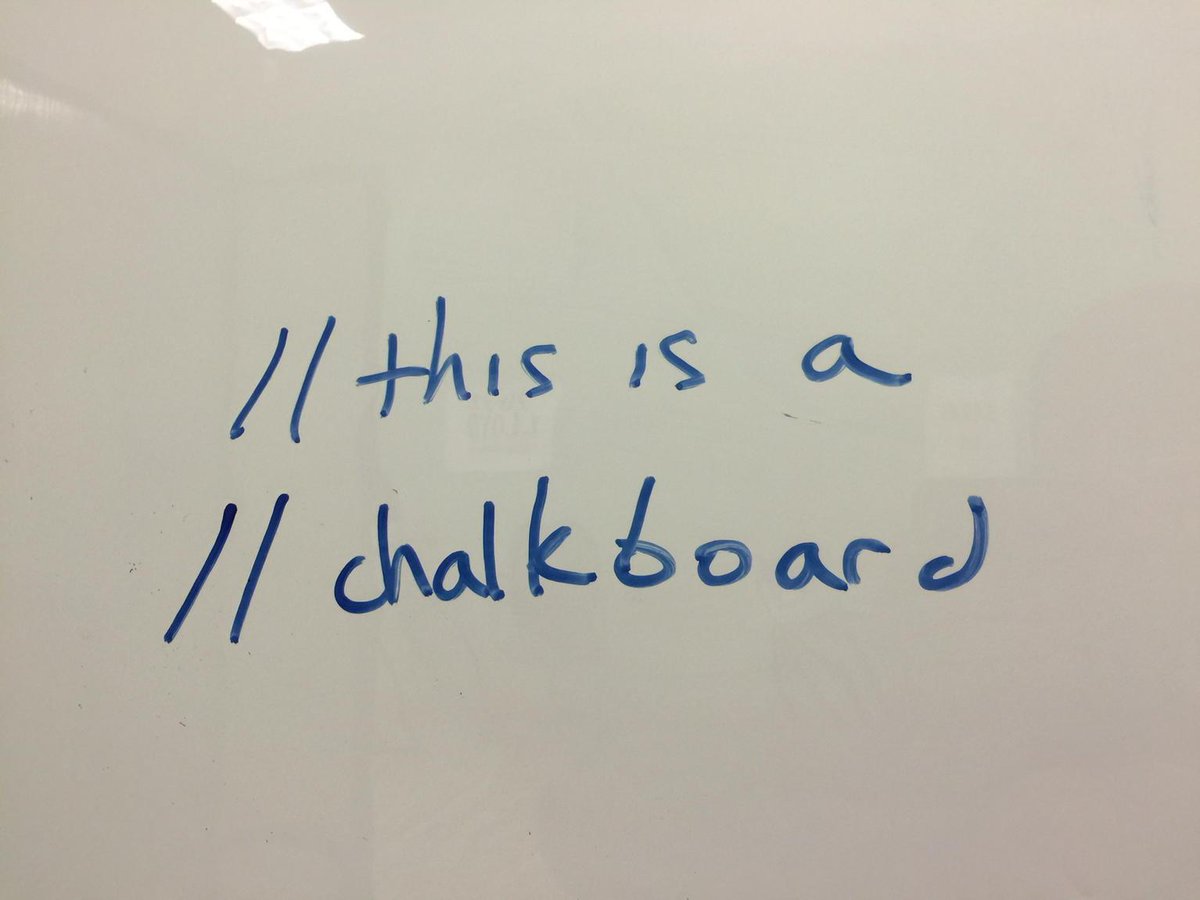 //this is a
// chalkboard